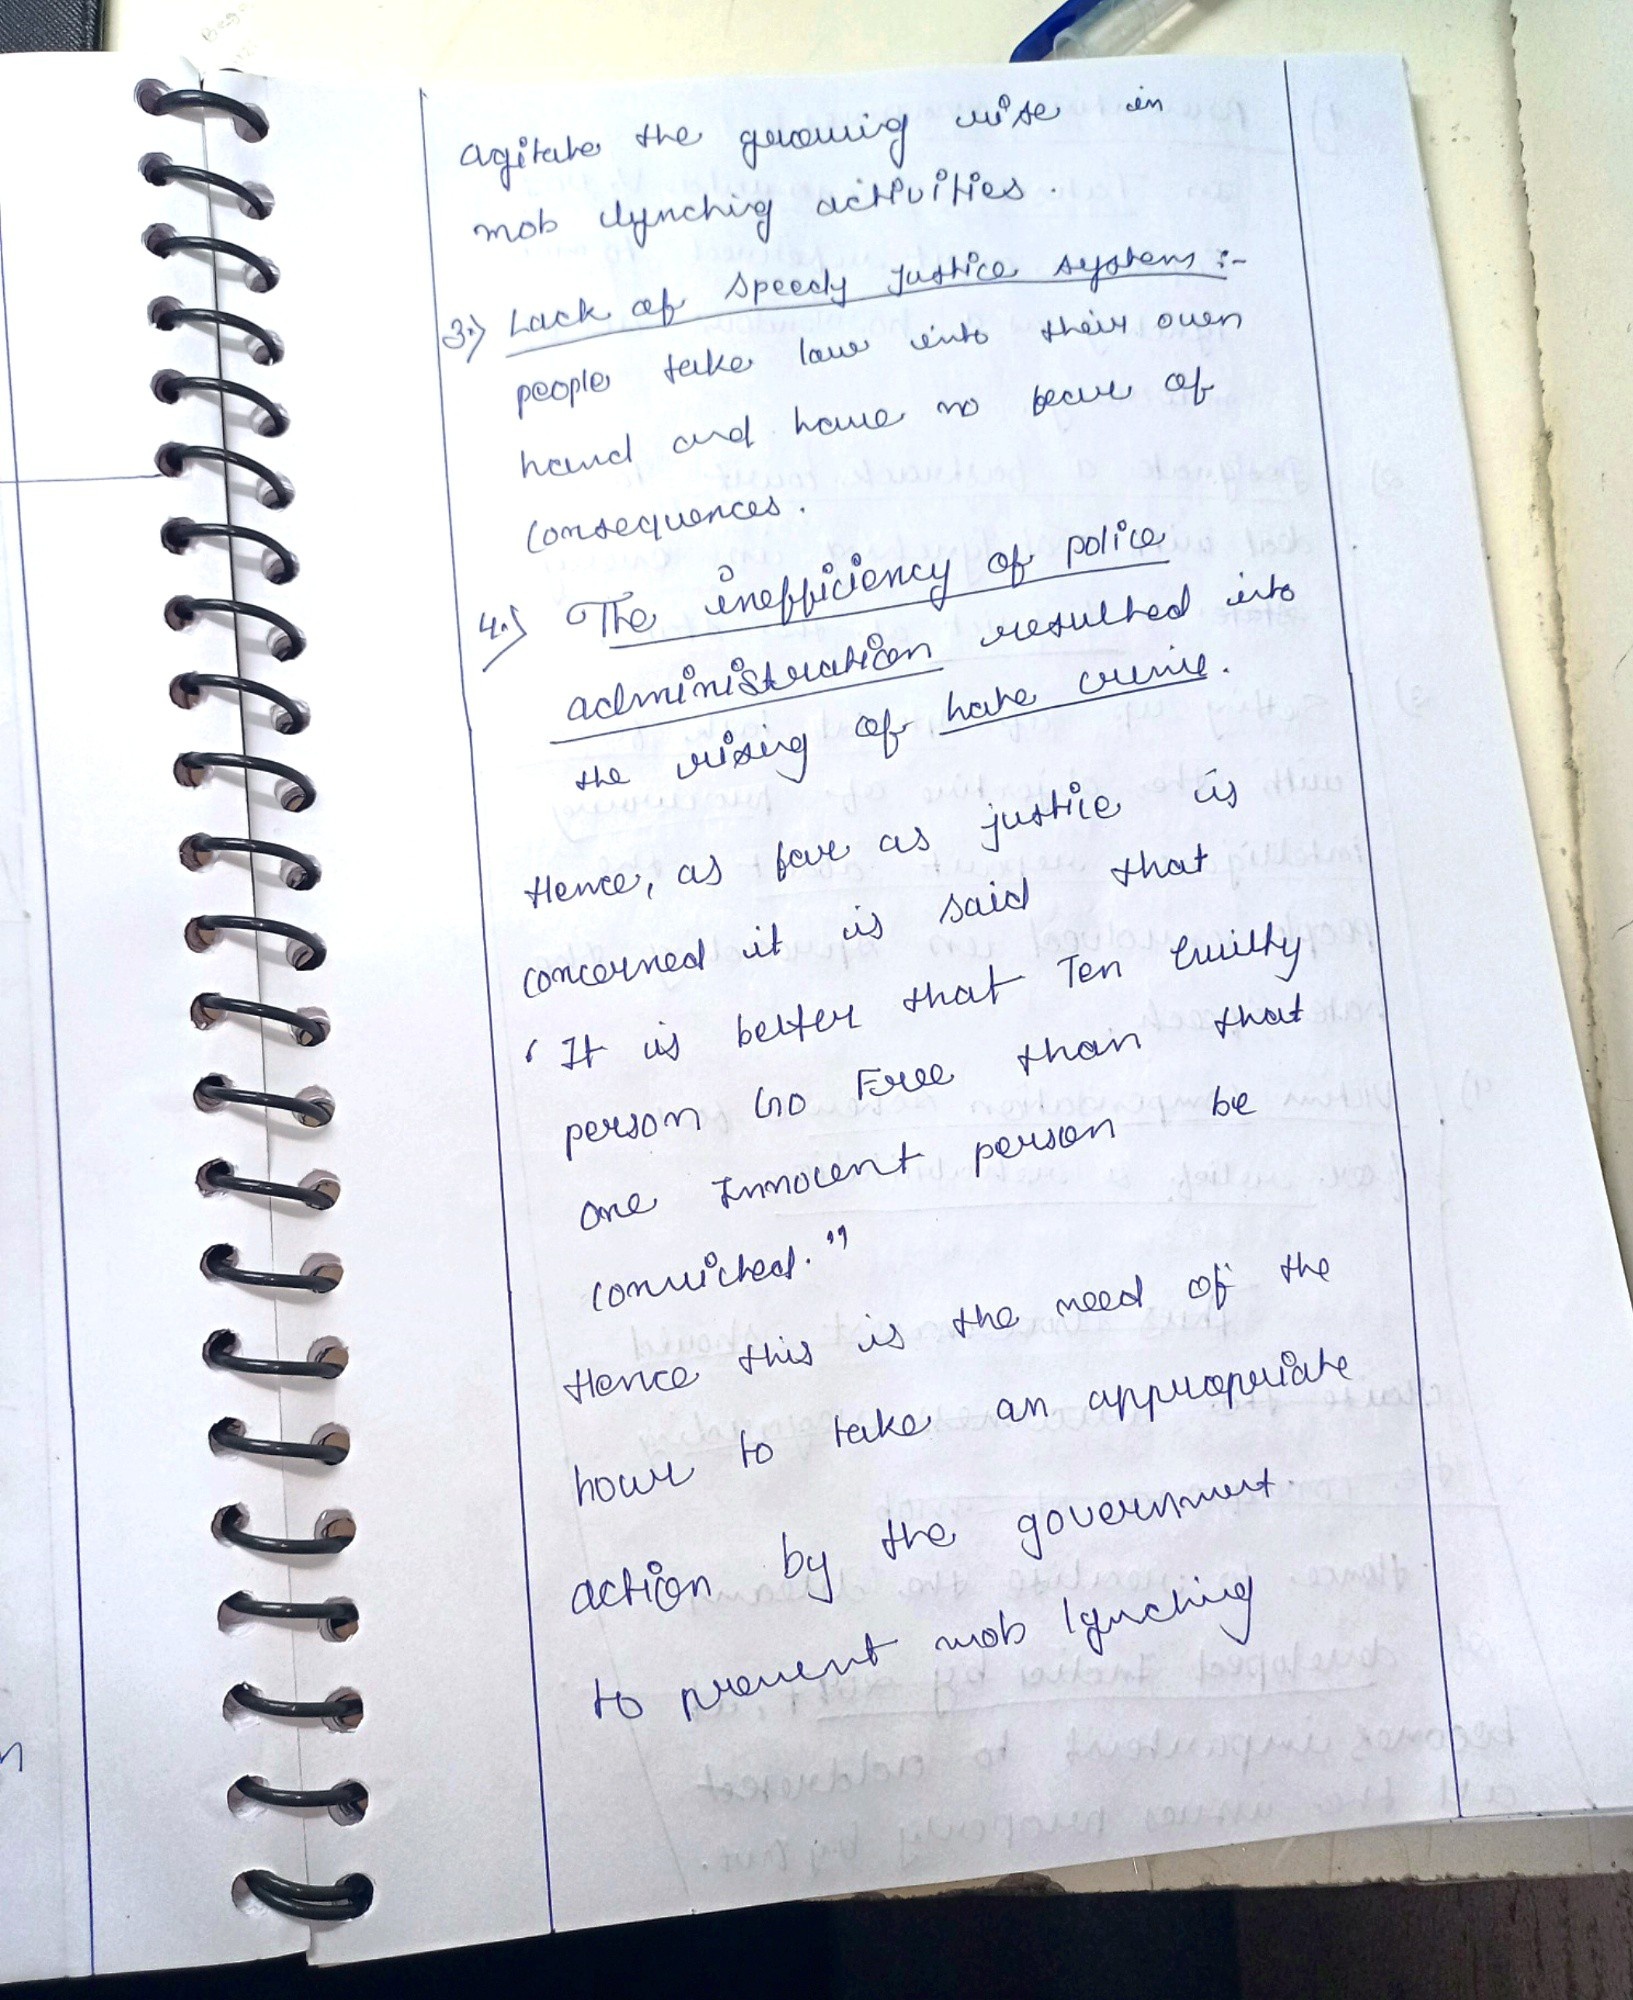 agitate the growing rise in
mob lynching activities.
3.) Lack of speedy justice system :-
people take law into their own
hand and have no fear of
consequences.
4.) The inefficiency of police
administration resulted into
the rising of hate crime.
Hence, as far as justice is
concerned it is said that
"It is better that Ten Guilty
person Go Free than that
one Innocent person be
convicted."
Hence this is the need of the
hour to take an appropriate
action by the government
to prevent mob lynching